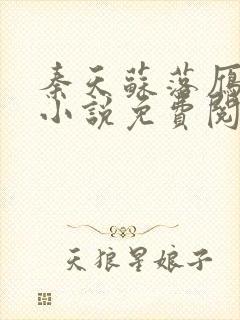 秦天蘇落雁
小說免費閱
天狼星娘子